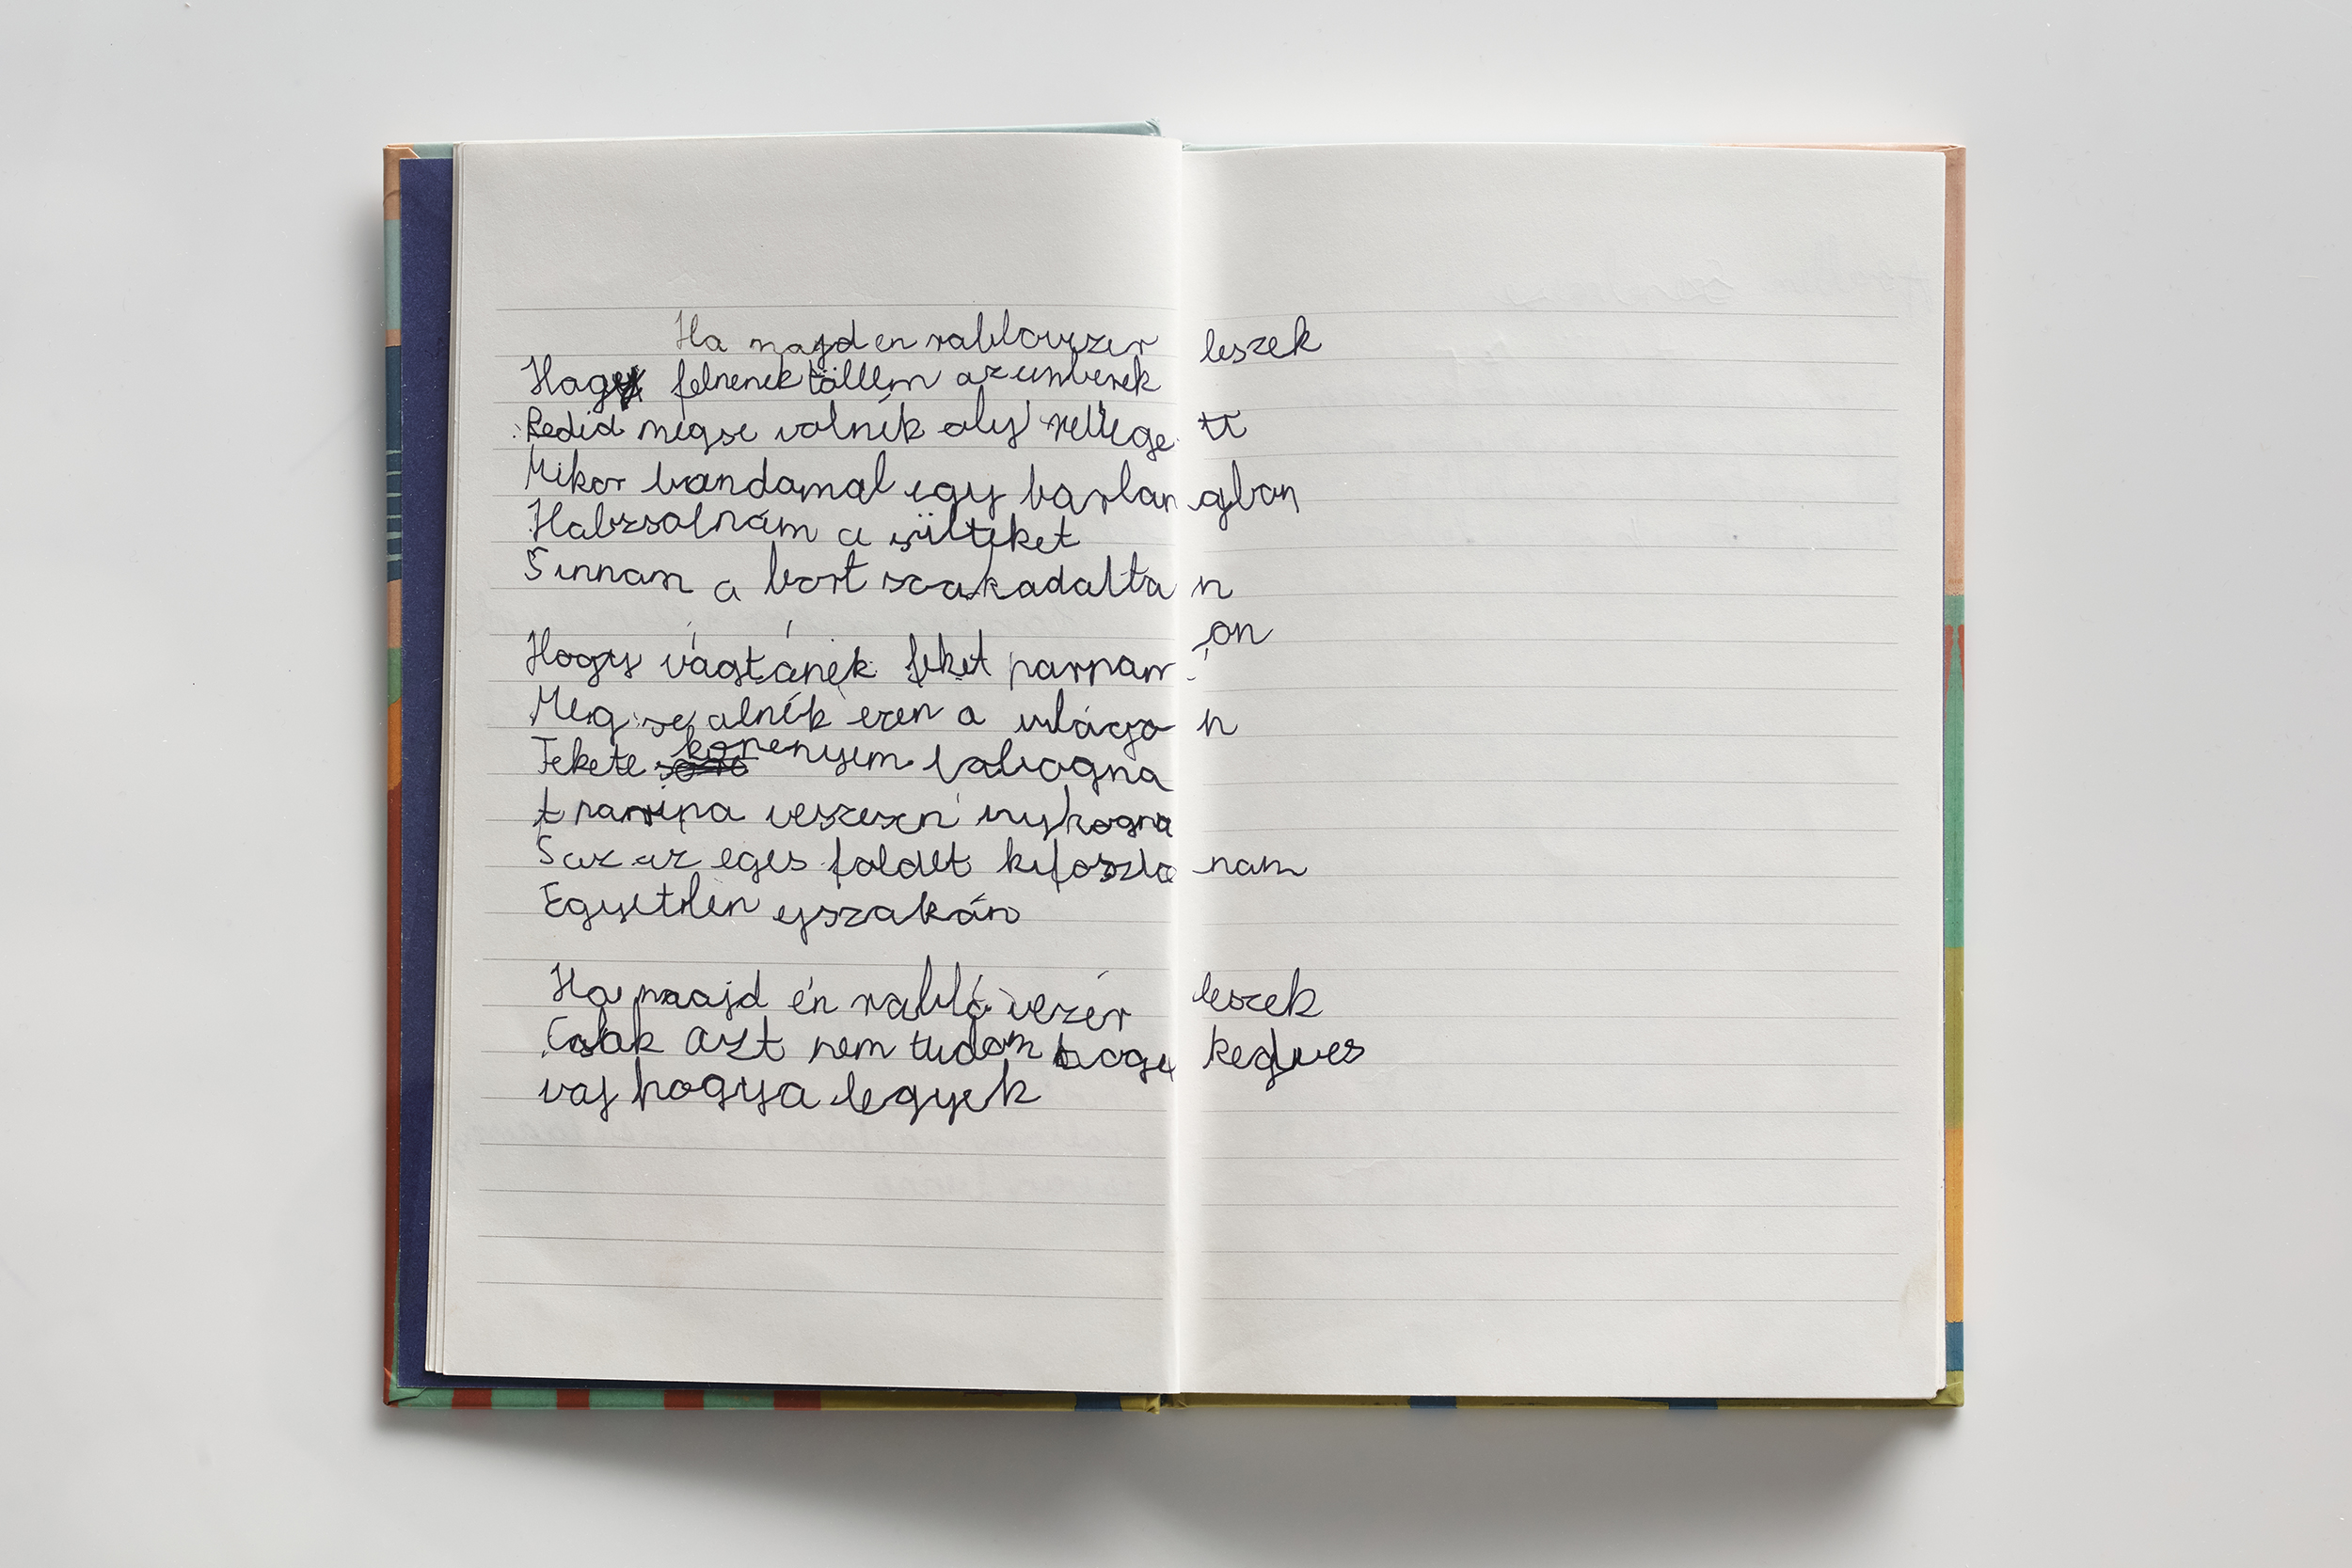 Ha majd en rablovezer leszek
Hagy felnenek tölllem az emberek
Pedid megse volnék oly rettegett
Mikor bandamal egy barlangban
Habzsolnám a sülteket
S innam a bort szakadaltan
Hogy vágtánék feket parpamon
Meg se alnék ezen a világon
Fekete kopenyem lobogna
veszesen vyhogna
S az az eges foldet kifosztanam
Egyetlen ejszakán
Ha majd én rabló vezér leszek
Csak azt nem tudom hogy kedves
vaj hogya legyek